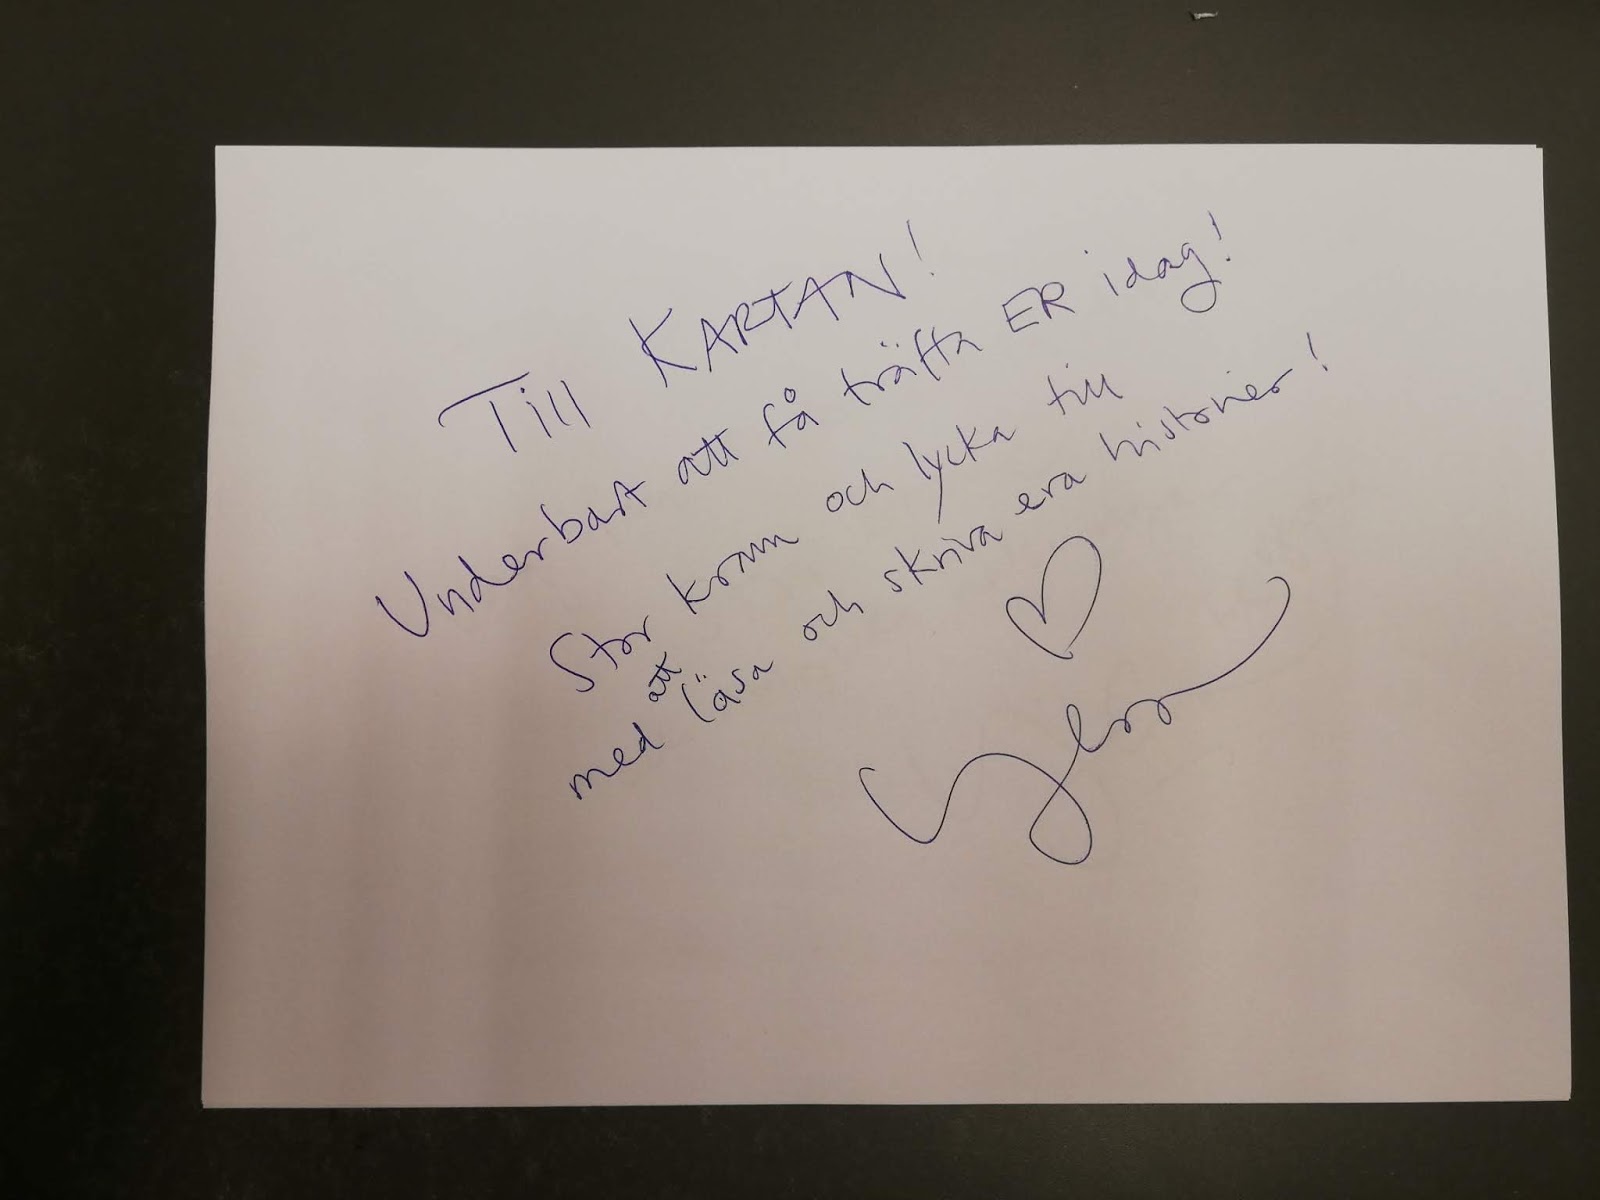 Till KARTAN!
Underbart att få träffa ER idag!
Stor kram och lycka till
med att läsa och skriva era historier!